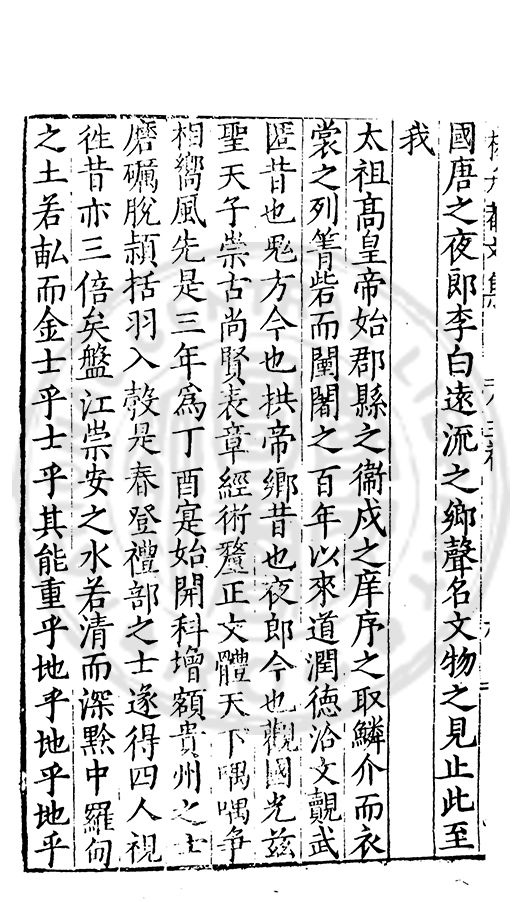 國唐之夜郎李白遠流之鄉聲名文物之見止此至
我
太祖高皇帝始郡縣之衞戍之庠序之取鱗介而衣
裳之列箐砦而闤闠之百年以來道潤德洽文覿武
匿昔也鬼方今也拱帝鄉昔也夜郎今也觀國光兹
聖天子崇古尚賢表章經術釐正文體天下喁喁争
相嚮風先是三年爲丁酉寔始開科增額貴州之士
磨礪脫頴括羽入彀是春登禮部之士遂得四人視
徃昔亦三倍矣盤江崇安之水若清而深黔中羅甸
之土若畆而金士乎士乎其能重乎地乎地乎地乎